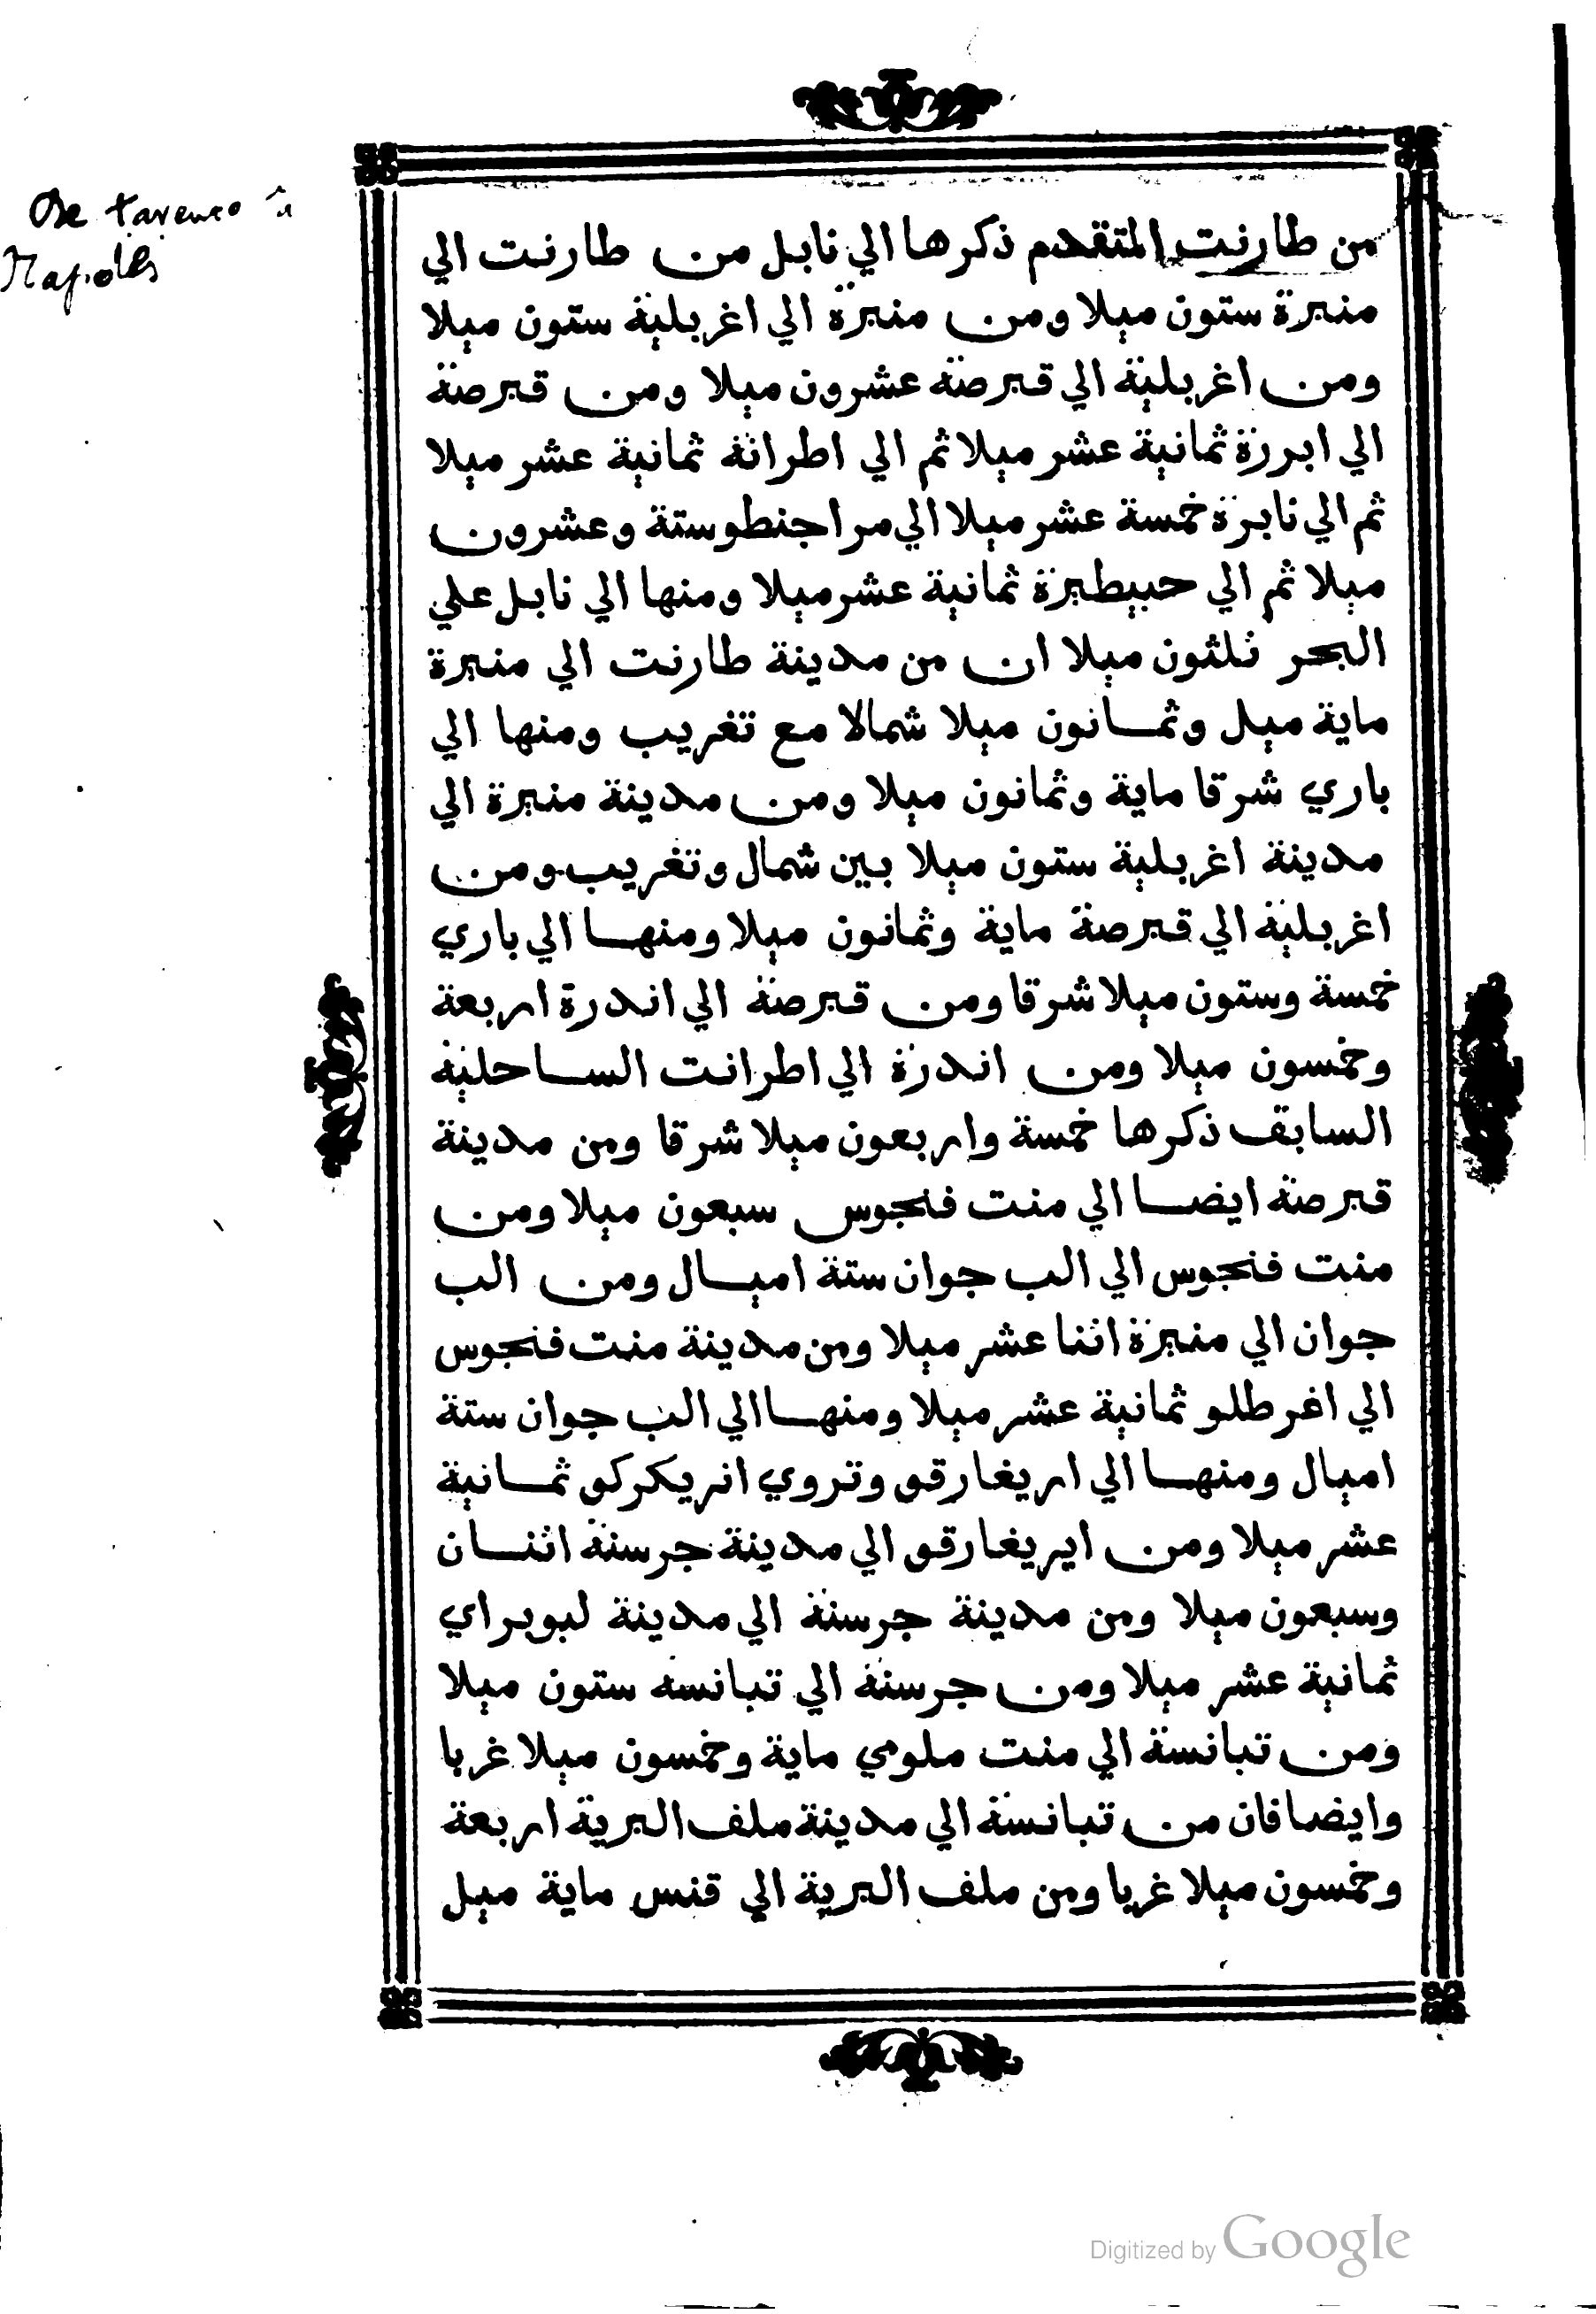 De tarento à
Napoles
من طارنت المتقدم ذكرها الي نابل من طارنت الي
منبرة ستون ميلا ومن منبرة الي اغربلية ستون ميلا
ومن اغربلية الي قبرصة عشرون ميلا ومن قبرصة
الي ابرزة ثمانية عشر ميلا ثم الي اطرانة ثمانية عشر ميلا
ثم الي نابرة خمسة عشر ميلا الي مراجنطو ستة وعشرون
ميلا ثم الي حبيطبرة ثمانية عشر ميلا ومنها الي نابل علي
البحر ثلثون ميلا ان من مدينة طارنت الي منبرة
ماية ميل وثمانون ميلا شمالا مع تغريب ومنها الي
باري شرقا ماية وثمانون ميلا ومن مدينة منبرة الي
مدينة اغربلية ستون ميلا بين شمال وتغريب ومن
اغربلية الي قبرصة ماية وثمانون ميلا ومنها الي باري
خمسة وستون ميلا شرقا ومن قبرصة الي اندرة اربعة
وخمسون ميلا ومن اندرة الي اطرانت الساحلية
السابق ذكرها خمسة واربعون ميلا شرقا ومن مدينة
قبرصة ايضا الي منت فنجوس سبعون ميلا ومن
منت فنجوس الي الب جوان ستة اميال ومن الب
جوان الي منبرة اثنا عشر ميلا ومن مدينة منت فنجوس
الي اغرطلو ثمانية عشر ميلا ومنها الي الب جوان ستة
اميال ومنها الي اريغارقو وتروي انريكركو ثمانية
عشر ميلا ومن ايريغارقو الي مدينة جرسنة اثنان
وسبعون ميلا ومن مدينة جرسنة الي مدينة لبوبراي
ثمانية عشر ميلا ومن جرسنة الي تبانسة ستون ميلا
ومن تبانسة الي منت ملومي ماية وخمسون ميلا غربا
وايضا فان من تبانسة الي مدينة ملف البرية اربعة
وخمسون ميلا غربا ومن ملف البرية الي قنس ماية ميل
Digitized by Google